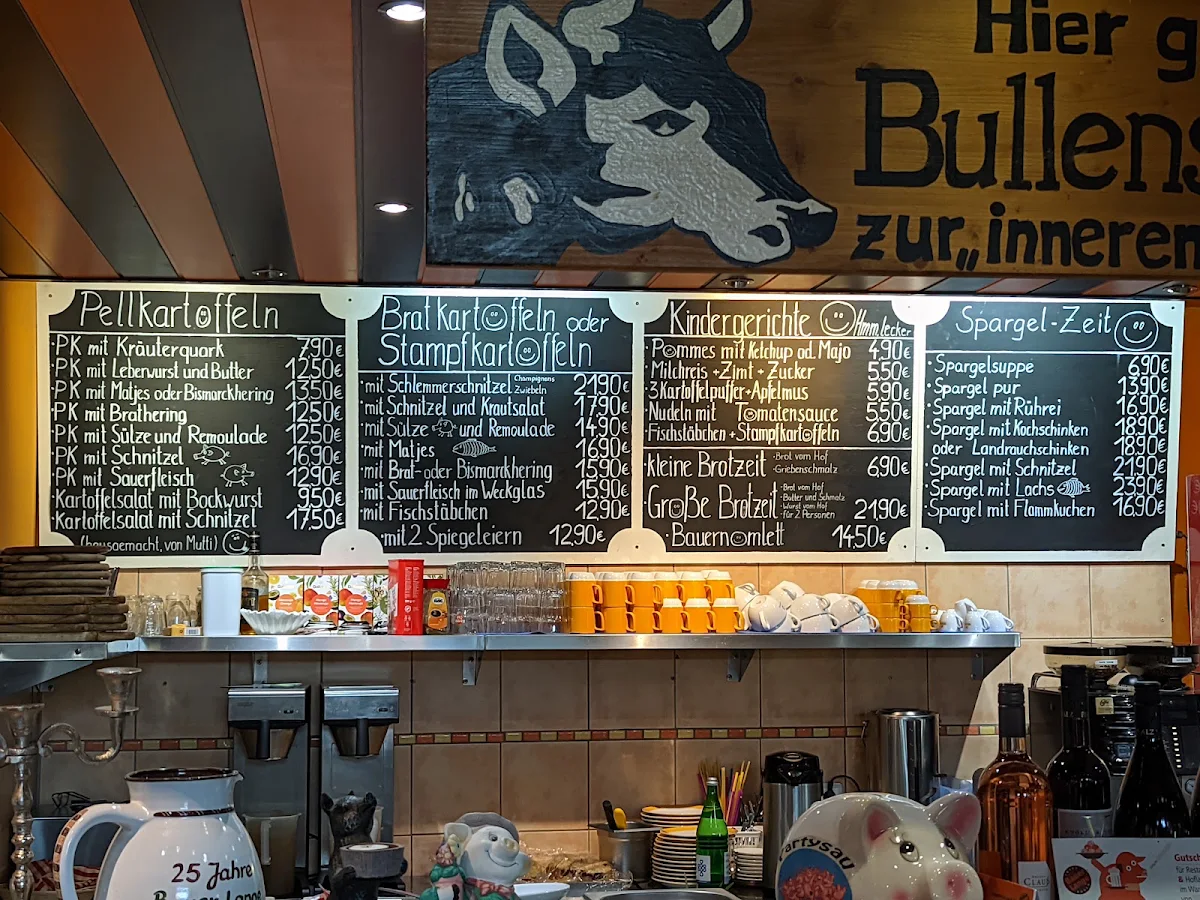 Hier g
Bullens
zur „inneren
Pellkartoffeln
PK mit Kräuterquark 7,90€
PK mit Leberwurst und Butter 12,50€
PK mit Matjes oder Bismarckhering 13,50€
PK mit Brathering 12,50€
PK mit Sülze und Remoulade 12,50€
PK mit Schnitzel 16,90€
PK mit Sauerfleisch 12,90€
Kartoffelsalat mit Bockwurst 9,50€
Kartoffelsalat mit Schnitzel 17,50€
(hausgemacht, von Mutti)
Bratkartoffeln oder
Stampfkartoffeln
mit Schlemmerschnitzel Champignons Zwiebeln 21,90€
mit Schnitzel und Krautsalat 17,90€
mit Sülze und Remoulade 14,90€
mit Matjes 16,90€
mit Brat- oder Bismarckhering 15,90€
mit Sauerfleisch im Weckglas 15,90€
mit Fischstäbchen 12,90€
mit 2 Spiegeleiern 12,90€
Kindergerichte Hmm lecker
Pommes mit Ketchup od. Majo 4,90€
Milchreis + Zimt + Zucker 5,50€
3 Kartoffelpuffer + Apfelmus 5,90€
Nudeln mit Tomatensauce 5,50€
Fischstäbchen + Stampfkartoffeln 6,90€
kleine Brotzeit · Brot vom Hof · Griebenschmalz 6,90€
Große Brotzeit · Brot vom Hof · Butter und Schmalz · Wurst vom Hof für 2 Personen 21,90€
Bauernomlett 14,50€
Spargel-Zeit
Spargelsuppe 6,90€
Spargel pur 13,90€
Spargel mit Rührei 16,90€
Spargel mit Kochschinken 18,90€
oder Landrauchschinken 18,90€
Spargel mit Schnitzel 21,90€
Spargel mit Lachs 23,90€
Spargel mit Flammkuchen 16,90€
25 Jahre
Partysau
Gutsch